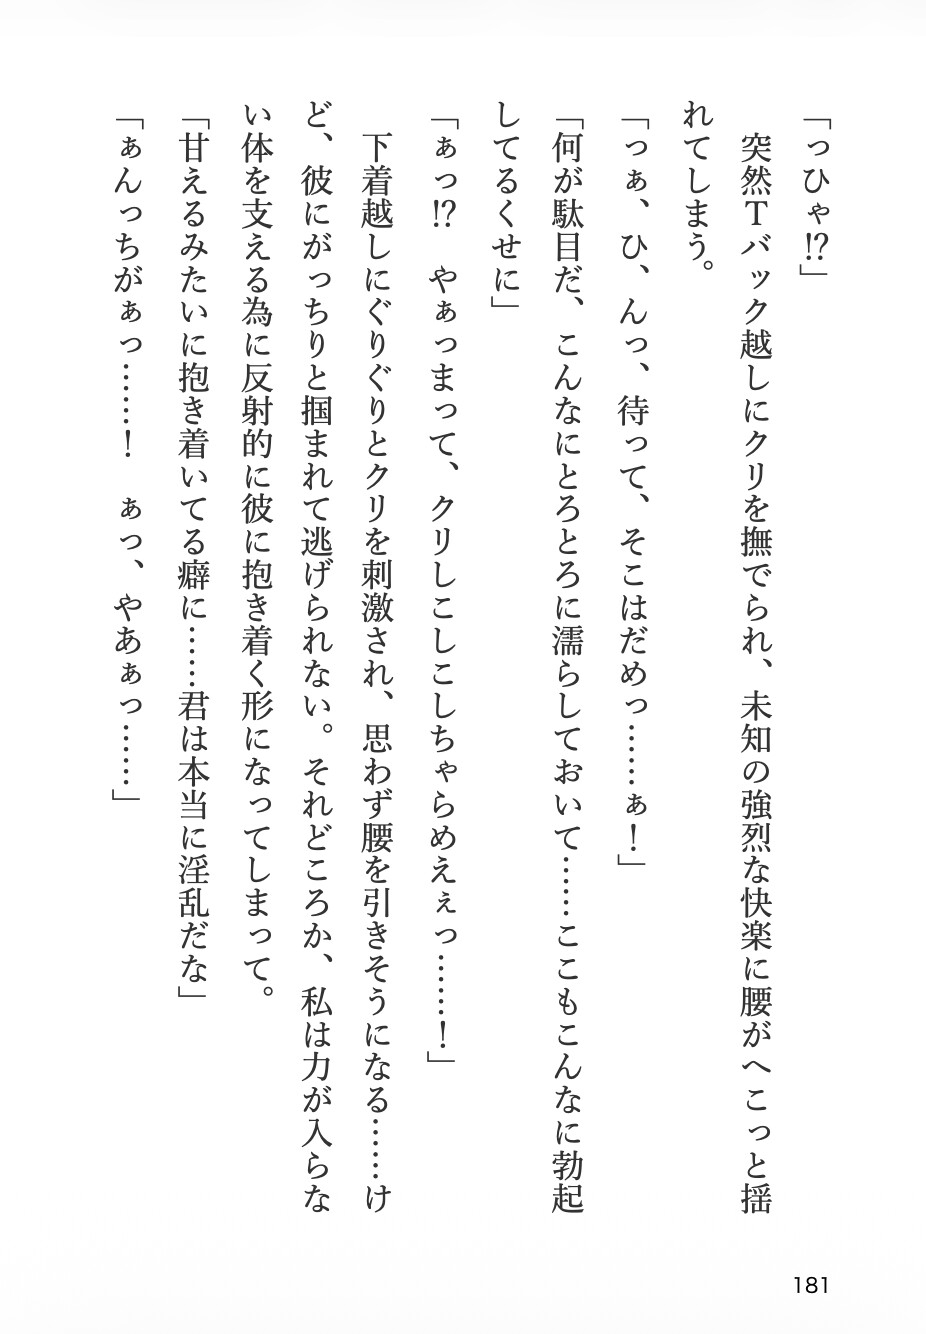 「っひゃ⁉」
　突然Ｔバック越しにクリを撫でられ、未知の強烈な快楽に腰がへこっと揺
れてしまう。
「っぁ、ひ、んっ、待って、そこはだめっ……ぁ！」
「何が駄目だ、こんなにとろとろに濡らしておいて……ここもこんなに勃起
してるくせに」
「ぁっ⁉　やぁっまって、クリしこしこしちゃらめえぇっ……！」
　下着越しにぐりぐりとクリを刺激され、思わず腰を引きそうになる……け
ど、彼にがっちりと掴まれて逃げられない。それどころか、私は力が入らな
い体を支える為に反射的に彼に抱き着く形になってしまって。
「甘えるみたいに抱き着いてる癖に……君は本当に淫乱だな」
「ぁんっちがぁっ……！　ぁっ、やあぁっ……」
181